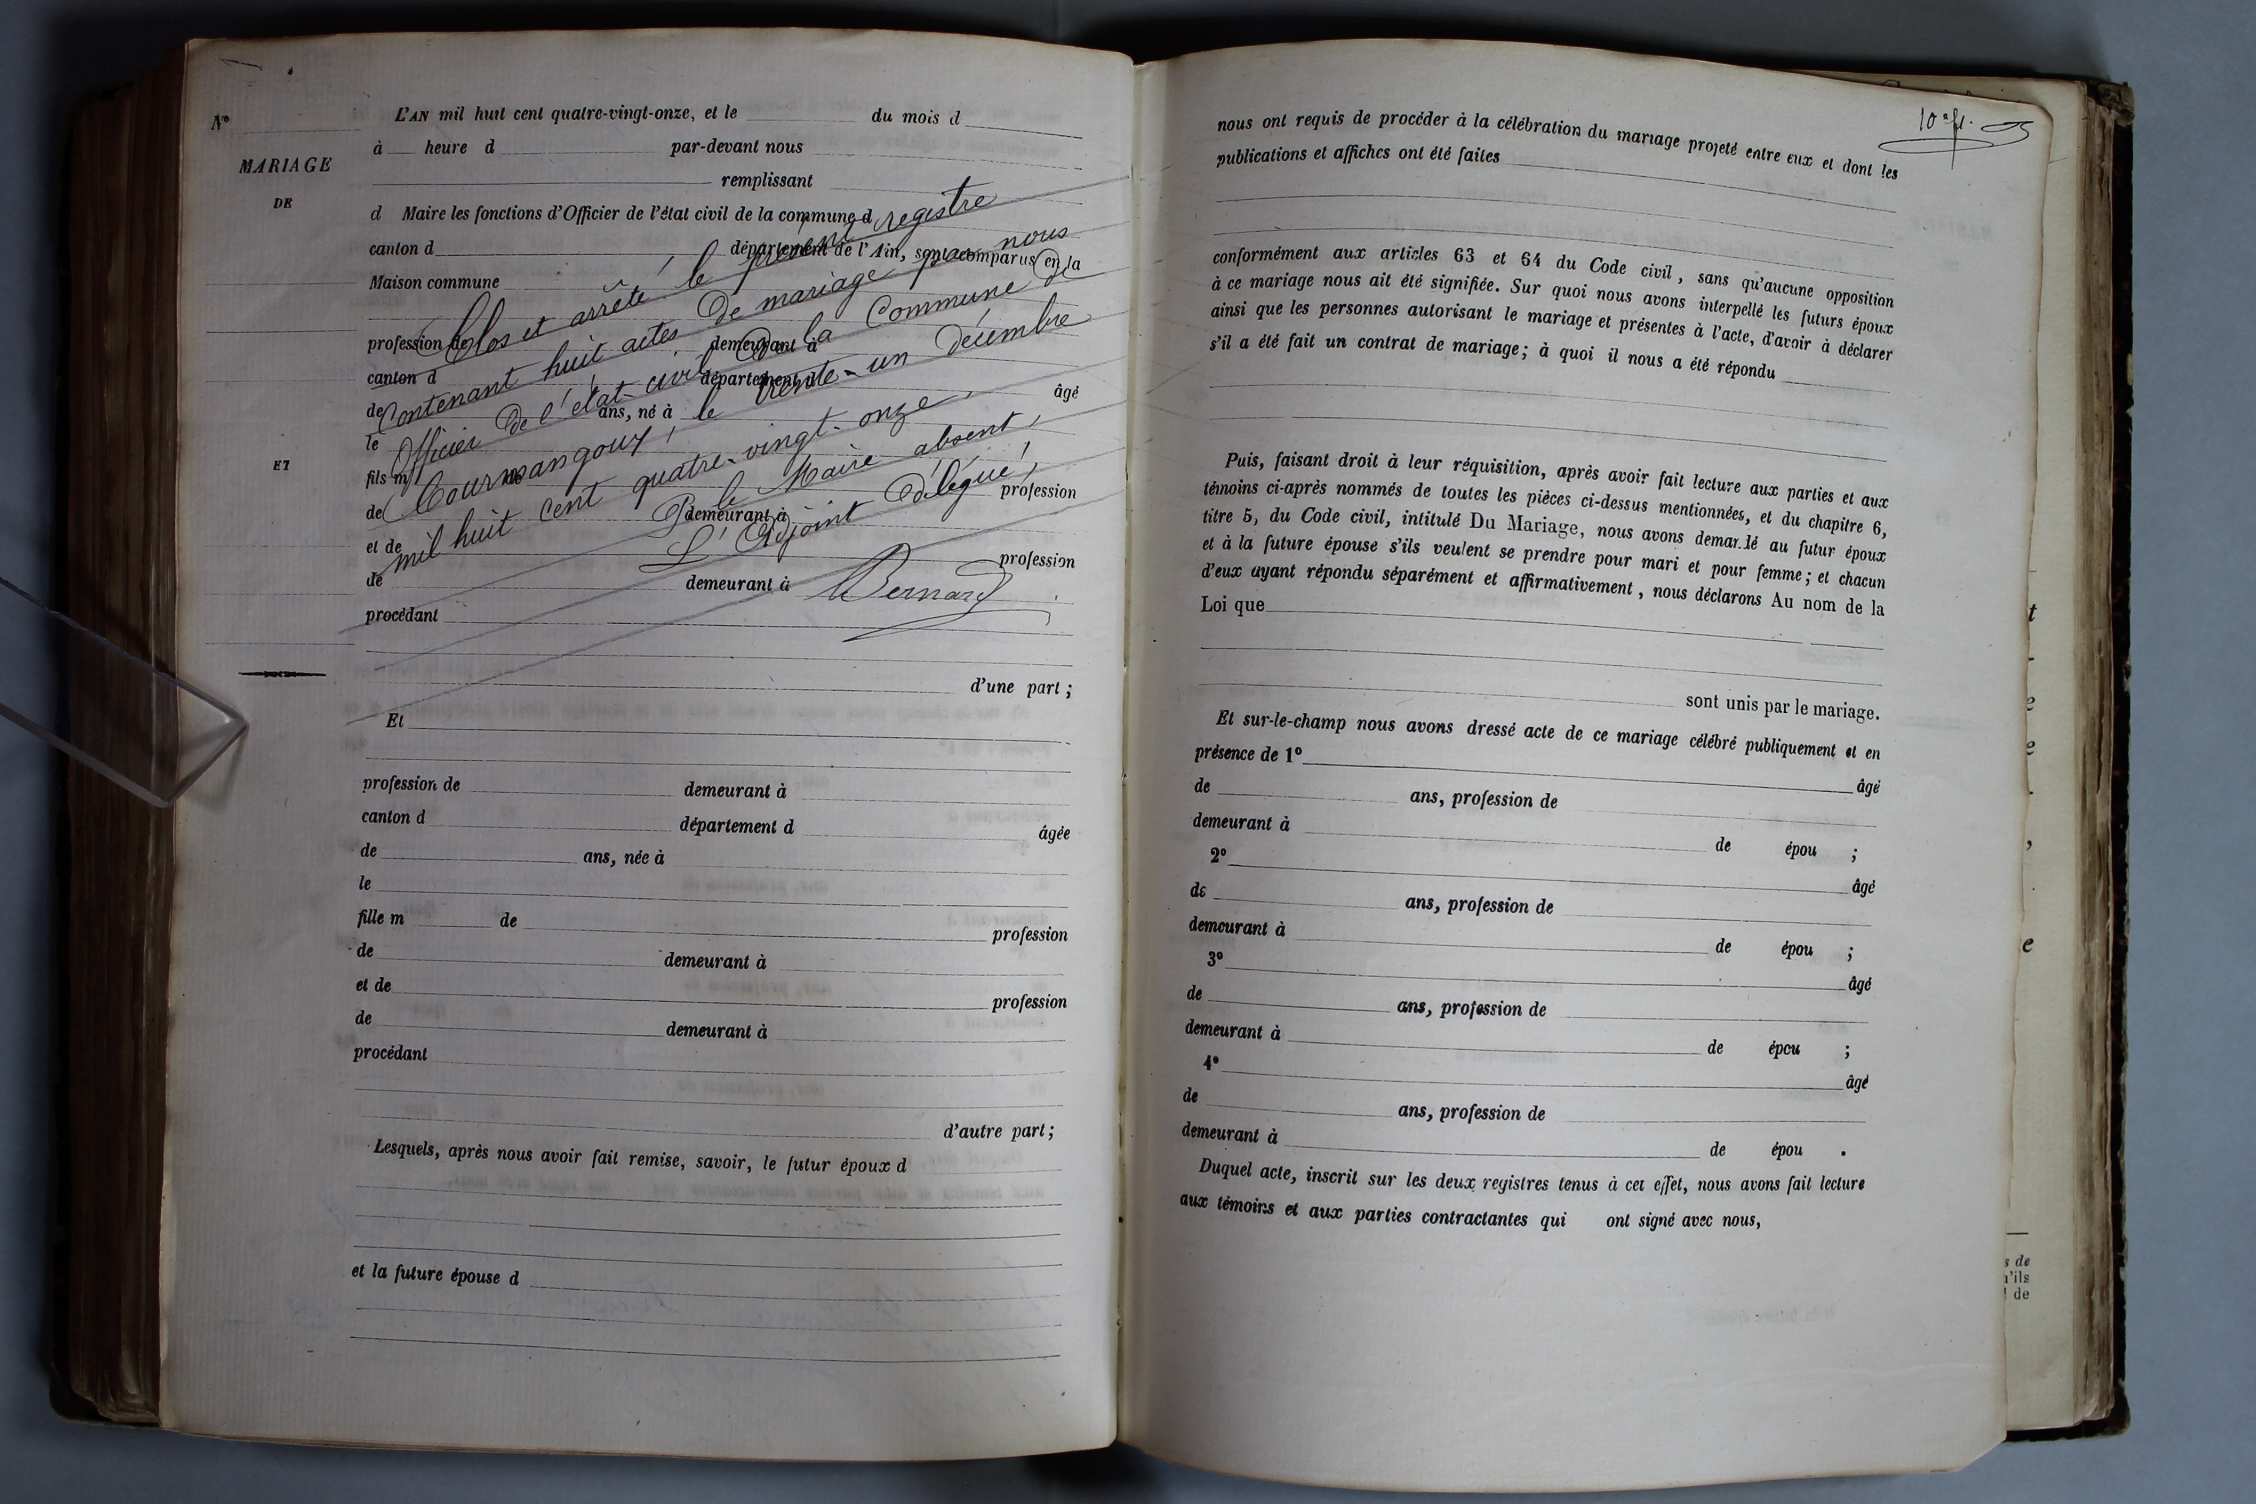 N°
MARIAGE
DE
ET
L'AN mil huit cent quatre-vingt-onze, et le du mois d
à heure d par-devant nous
remplissant
d Maire les fonctions d'Officier de l'état civil de la commune d
canton d département de l'Ain, sont comparus en la
Maison commune
profession de demeurant à
canton d département d
âgé
de ans, né à
le
fils m de
profession
de demeurant à
et de
profession
de demeurant à
procédant
d'une part ;
Clos et arrêté le présent registre
contenant huit actes de mariage par nous
Officier de l'état-civil de la Commune de
Courmangoux, le trente-un décembre
mil huit cent quatre-vingt-onze,
P. le Maire absent,
L'Adjoint délégué,
Bernard
Et
profession de demeurant à
canton d département d âgée
de ans, née à
le
fille m de profession
de demeurant à
et de profession
de demeurant à
procédant
d'autre part ;
Lesquels, après nous avoir fait remise, savoir, le futur époux d
et la future épouse d
10e fl.
nous ont requis de procéder à la célébration du mariage projeté entre eux et dont les
publications et affiches ont été faites
conformément aux articles 63 et 64 du Code civil, sans qu'aucune opposition
à ce mariage nous ait été signifiée. Sur quoi nous avons interpellé les futurs époux
ainsi que les personnes autorisant le mariage et présentes à l'acte, d'avoir à déclarer
s'il a été fait un contrat de mariage ; à quoi il nous a été répondu
Puis, faisant droit à leur réquisition, après avoir fait lecture aux parties et aux
témoins ci-après nommés de toutes les pièces ci-dessus mentionnées, et du chapitre 6,
titre 5, du Code civil, intitulé Du Mariage, nous avons demandé au futur époux
et à la future épouse s'ils veulent se prendre pour mari et pour femme ; et chacun
d'eux ayant répondu séparément et affirmativement, nous déclarons Au nom de la
Loi que
sont unis par le mariage.
Et sur-le-champ nous avons dressé acte de ce mariage célébré publiquement et en
présence de 1° âgé
de ans, profession de
demeurant à de épou ;
2° âgé
de ans, profession de
demeurant à de épou ;
3° âgé
de ans, profession de
demeurant à de épou ;
4° âgé
de ans, profession de
demeurant à de épou .
Duquel acte, inscrit sur les deux registres tenus à cet effet, nous avons fait lecture
aux témoins et aux parties contractantes qui ont signé avec nous,
s de
u'ils
de